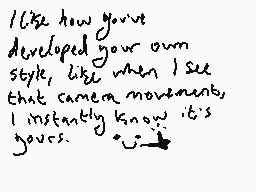 I like how you've
developed your own
style, like when I see
that camera movements,
I instantly know it's
yours.